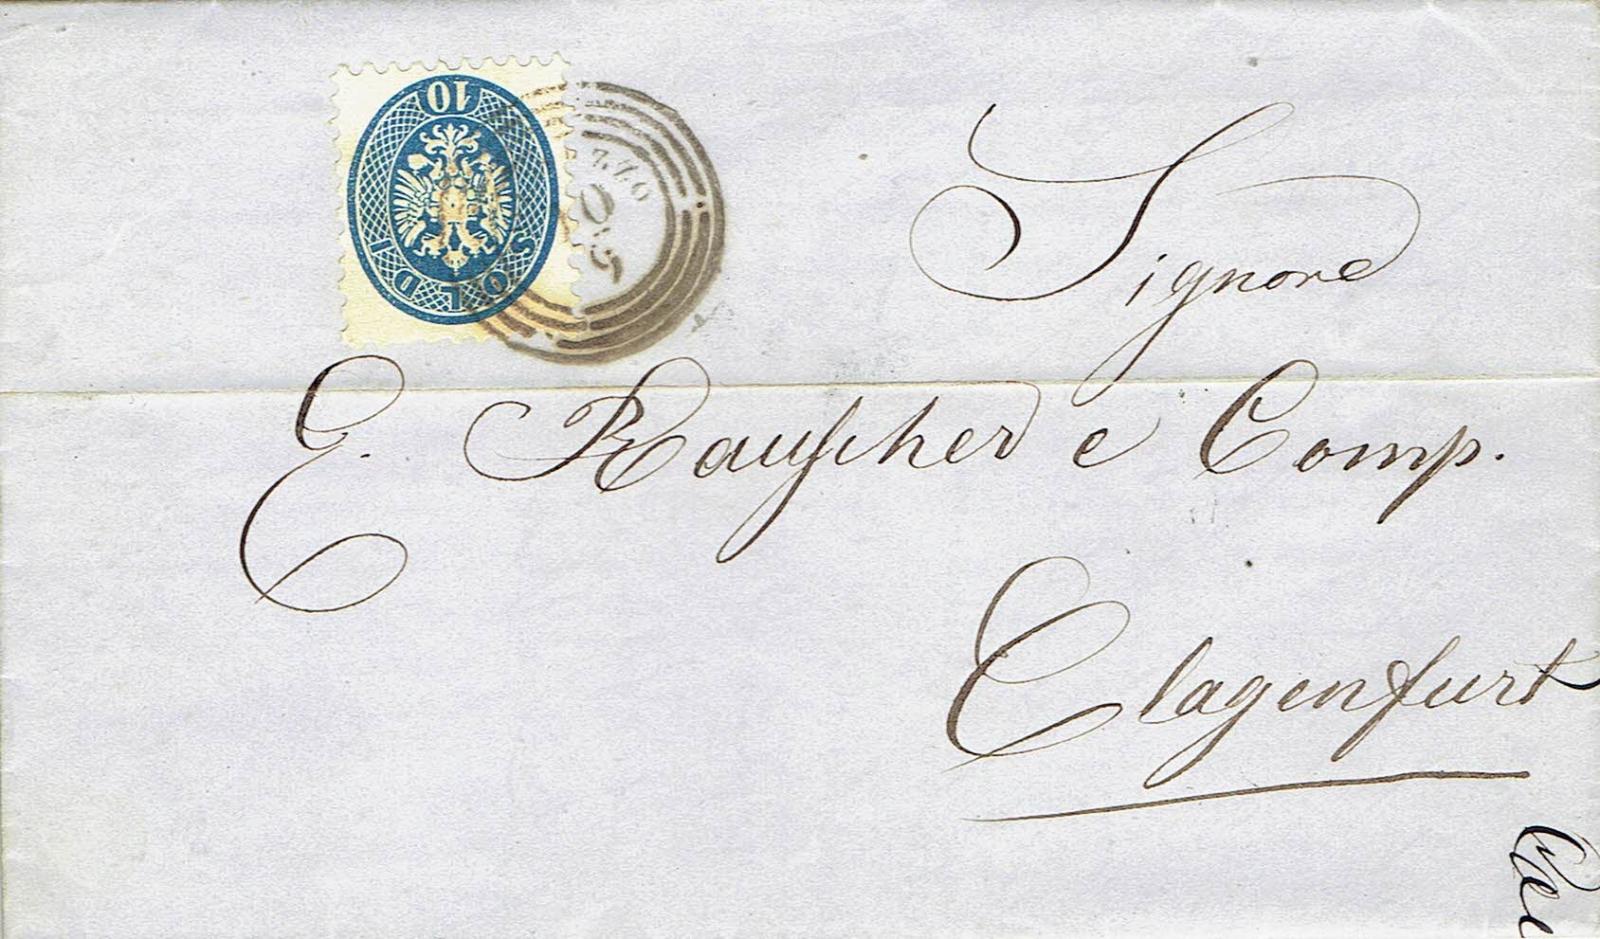 10
SOLDI
Signore
E. Rauscher e Comp.
Clagenfurt